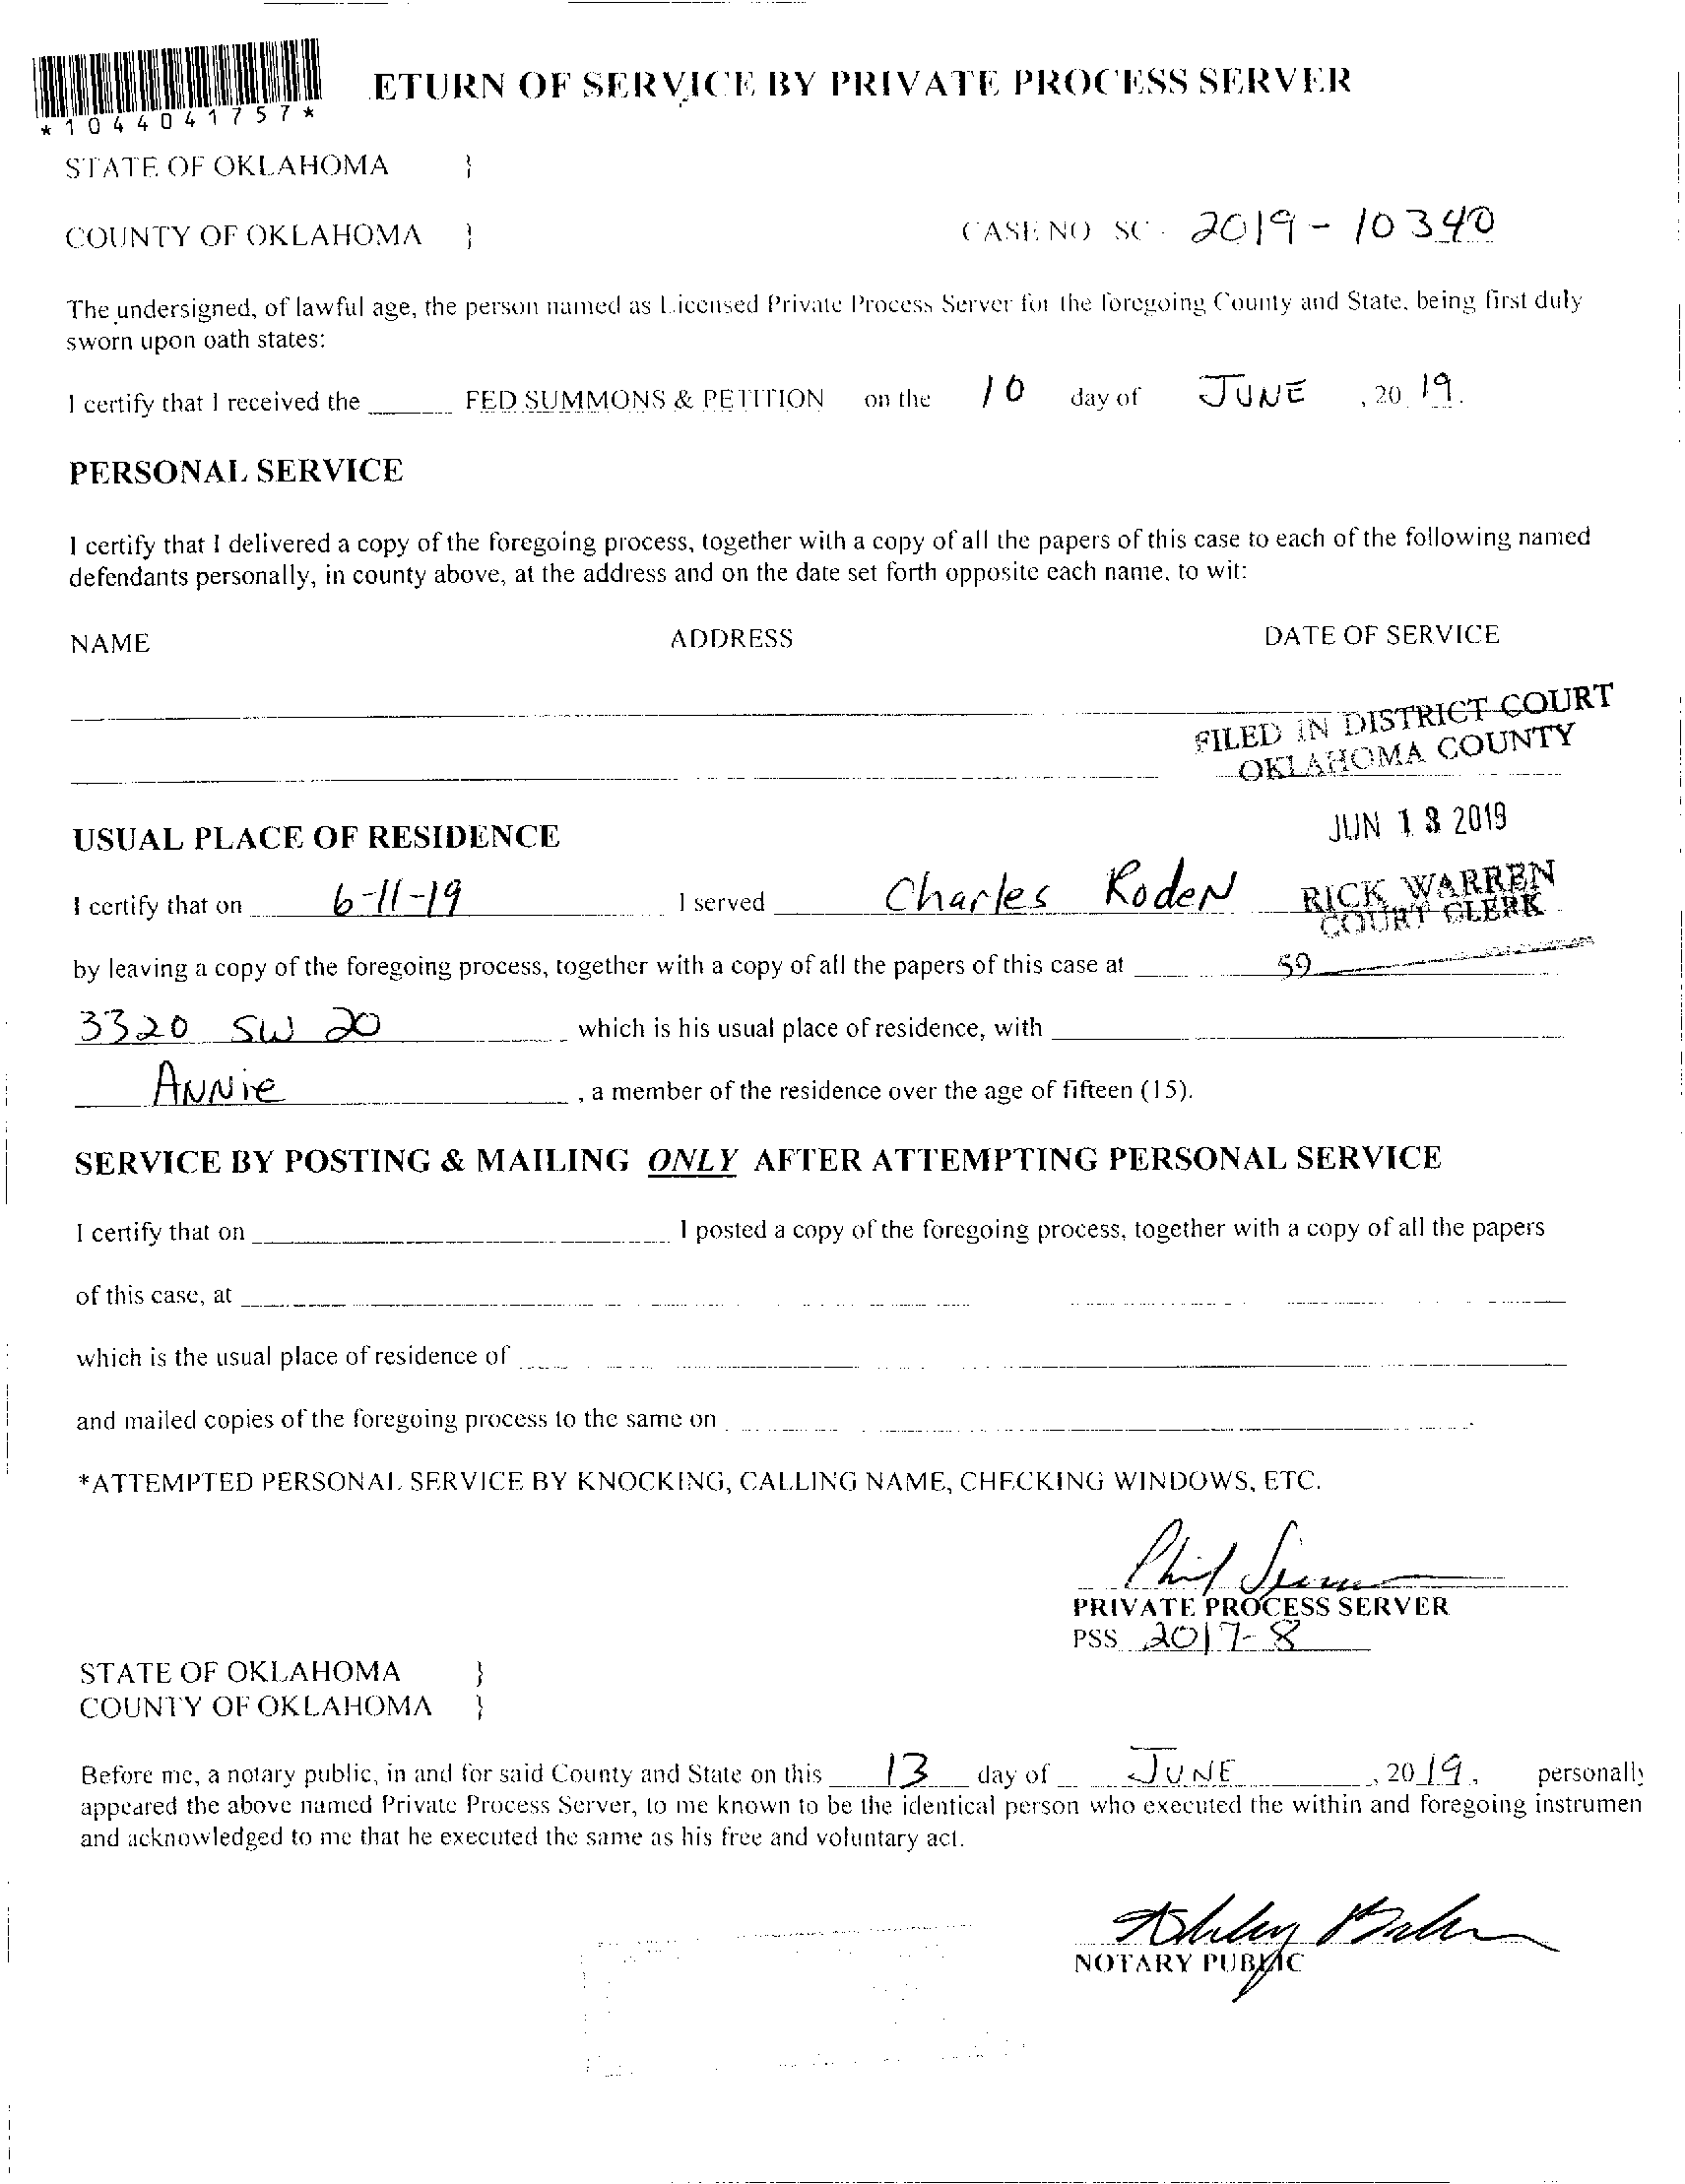 ETURN OF SERVICE BY PRIVATE PROCESS SERVER
*1044041757*
STATE OF OKLAHOMA }
COUNTY OF OKLAHOMA } CASE NO SC - 2019-10340
The undersigned, of lawful age, the person named as Licensed Private Process Server for the foregoing County and State, being first duly
sworn upon oath states:
I certify that I received the FED SUMMONS & PETITION on the 10 day of JUNE, 20 19.
PERSONAL SERVICE
I certify that I delivered a copy of the foregoing process, together with a copy of all the papers of this case to each of the following named
defendants personally, in county above, at the address and on the date set forth opposite each name, to wit:
NAME ADDRESS DATE OF SERVICE
FILED IN DISTRICT COURT
OKLAHOMA COUNTY
JUN 13 2019
USUAL PLACE OF RESIDENCE
RICK WARREN
COURT CLERK
I certify that on 6-11-19 I served Charles Roden
by leaving a copy of the foregoing process, together with a copy of all the papers of this case at 59
3320 SW 20 which is his usual place of residence, with
Annie, a member of the residence over the age of fifteen (15).
SERVICE BY POSTING & MAILING ONLY AFTER ATTEMPTING PERSONAL SERVICE
I certify that on I posted a copy of the foregoing process, together with a copy of all the papers
of this case, at
which is the usual place of residence of
and mailed copies of the foregoing process to the same on
*ATTEMPTED PERSONAL SERVICE BY KNOCKING, CALLING NAME, CHECKING WINDOWS, ETC.
Phil
PRIVATE PROCESS SERVER
PSS 2017-8
STATE OF OKLAHOMA }
COUNTY OF OKLAHOMA }
Before me, a notary public, in and for said County and State on this 13 day of JUNE, 2019, personally
appeared the above named Private Process Server, to me known to be the identical person who executed the within and foregoing instrumen
and acknowledged to me that he executed the same as his free and voluntary act.
Ashley
NOTARY PUBLIC